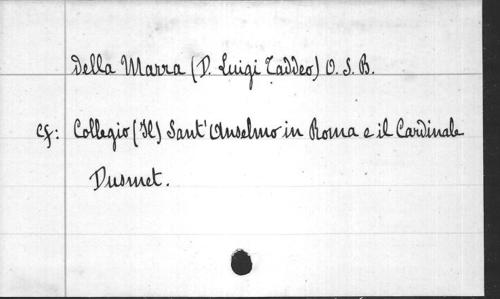 Della Marra (D. Luigi Taddeo) O. S. B.
cf: Collegio (Il) Sant' Anselmo in Roma e il Cardinale
Dusmet.